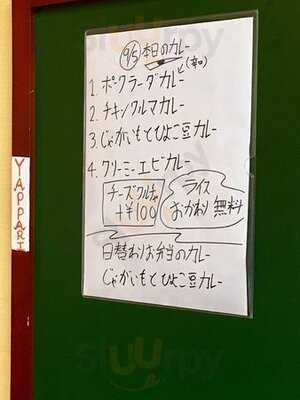 9/5 本日のカレー
1. ポークラーダカレー(辛)
2. チキンクルマカレー
3. じゃがいもとひよこ豆カレー
4. クリーミーエビカレー
チーズクルチャ
+¥100
ライス
おかわり 無料
日替わりお弁当のカレー
じゃがいもとひよこ豆カレー
YAPPARI